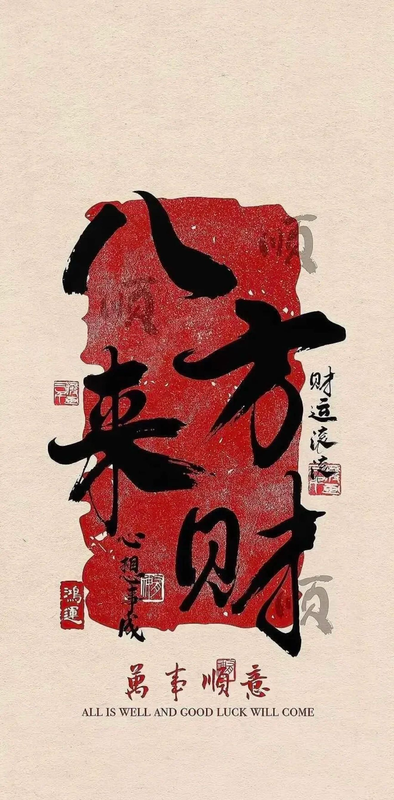 八方来财
顺
顺
顺
财运滚滚
心想事成
鸿運
萬事順意
ALL IS WELL AND GOOD LUCK WILL COME